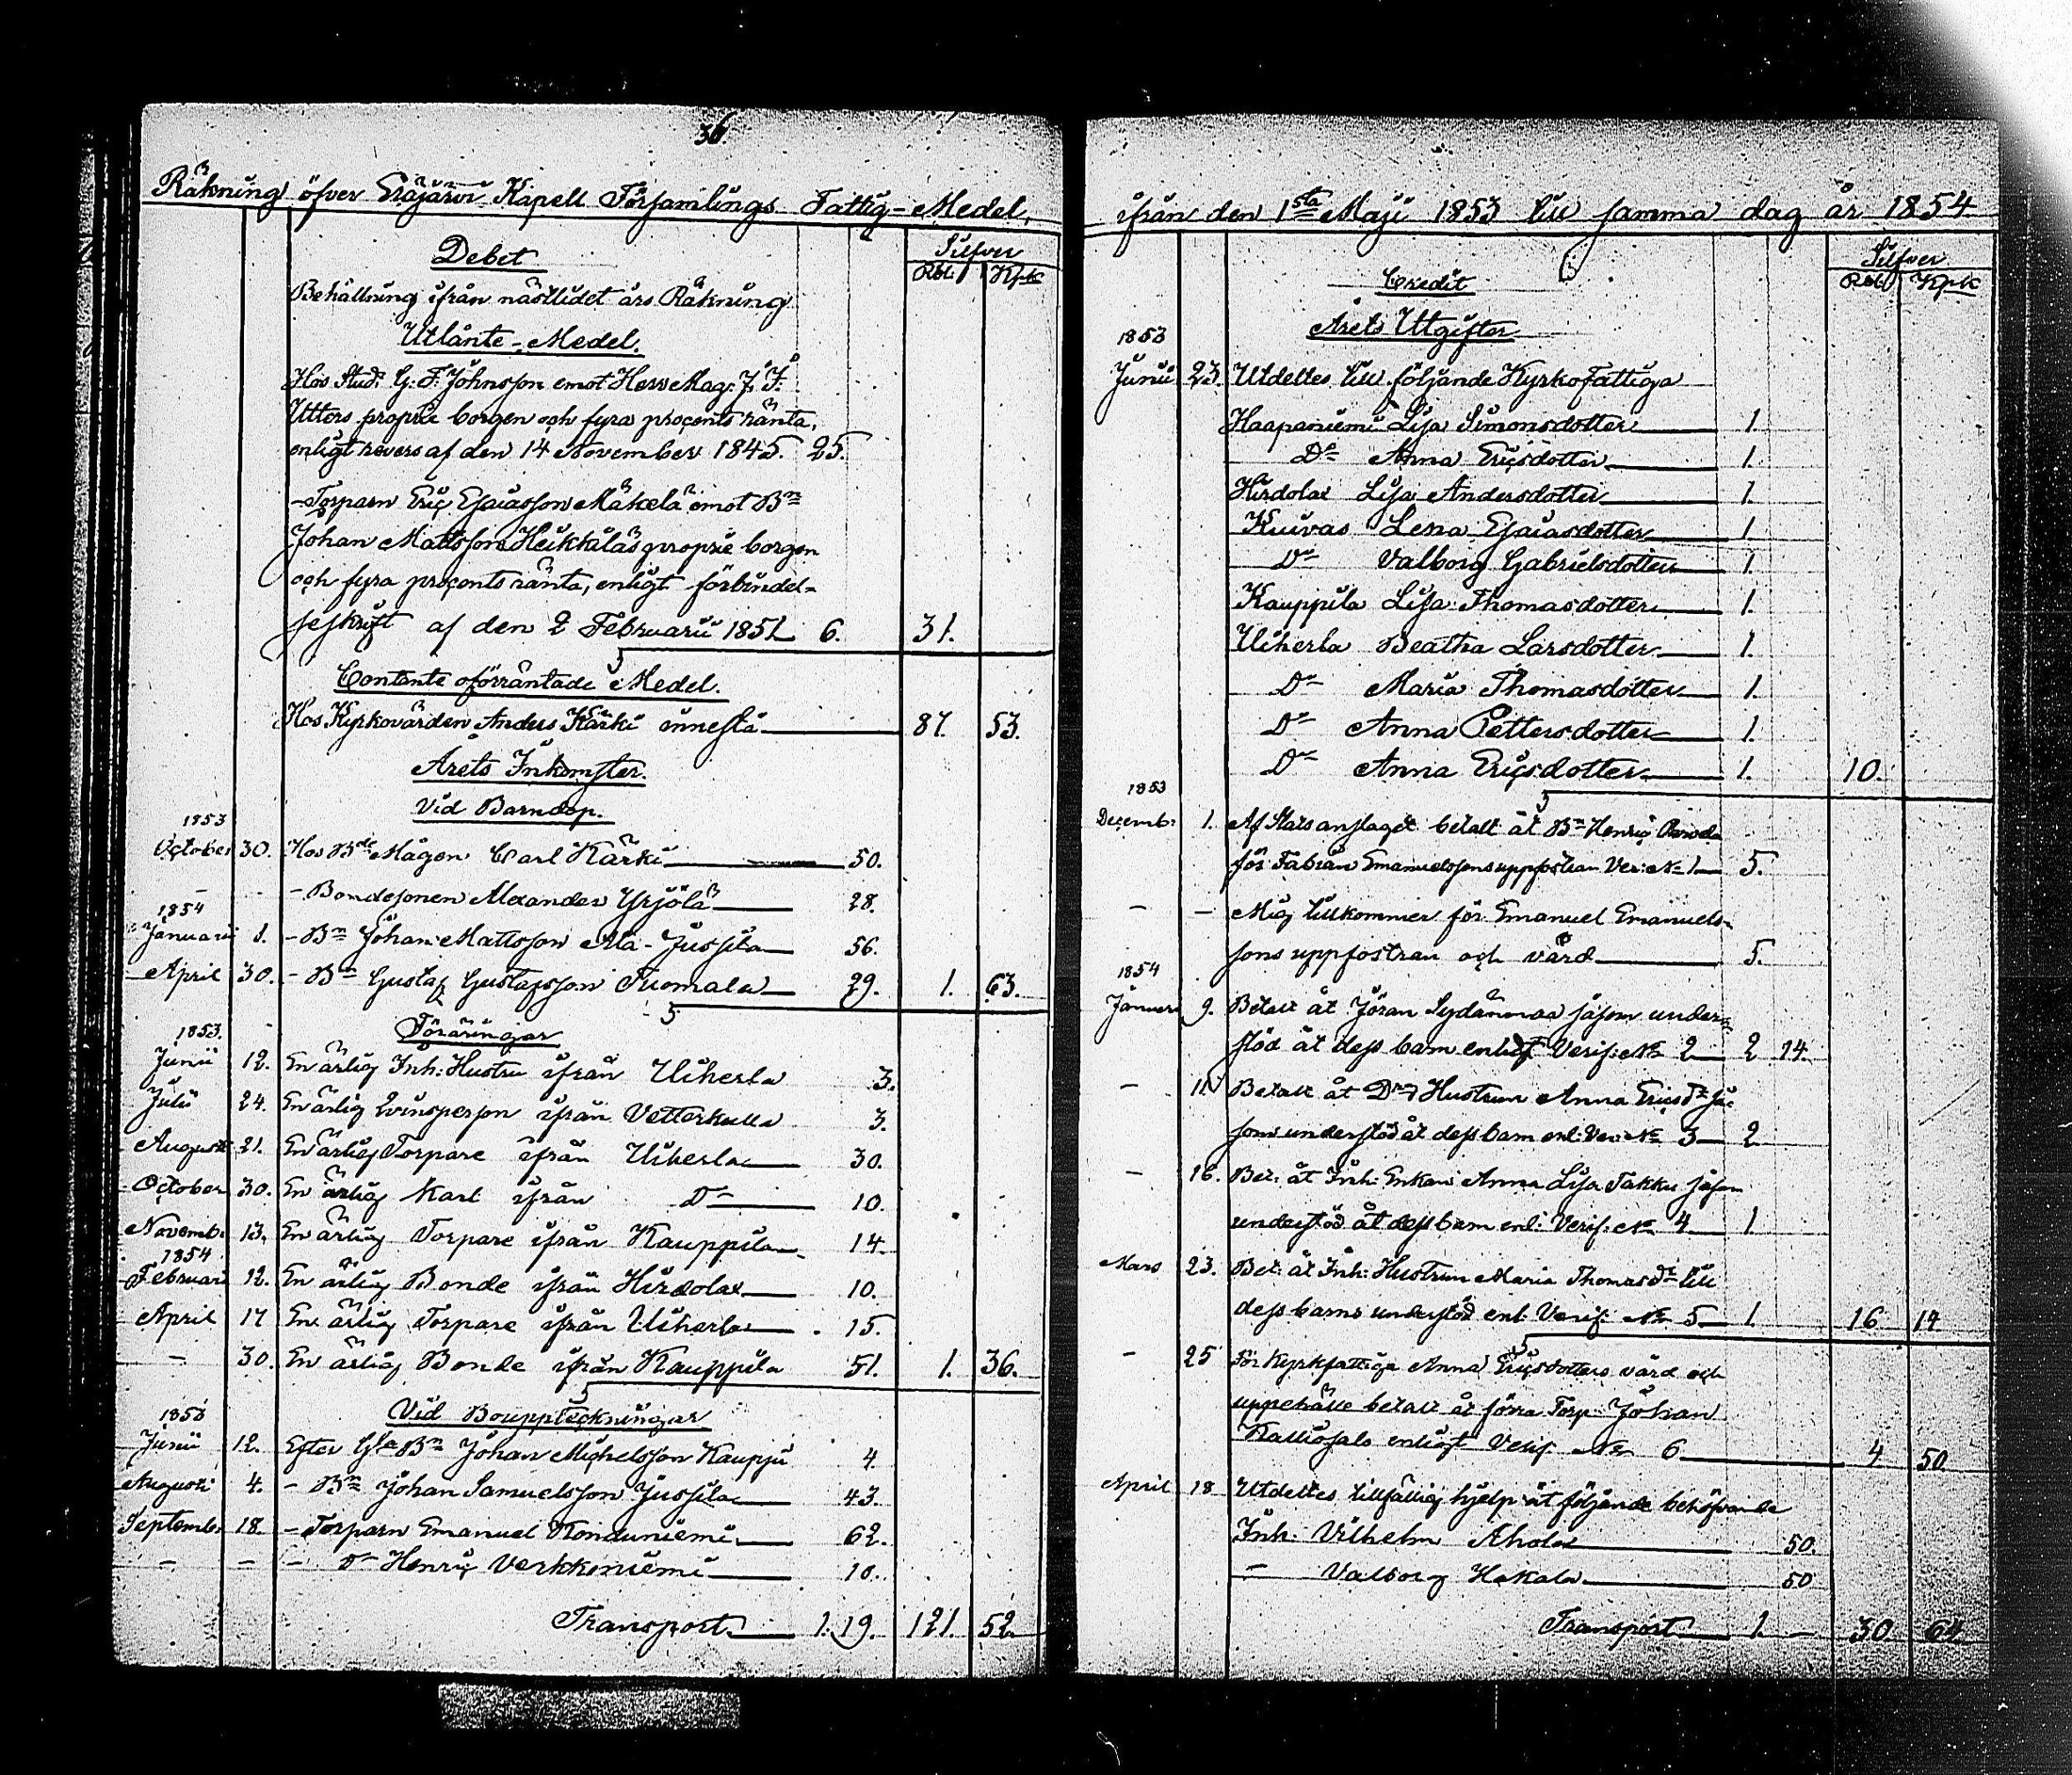 36.
Räkning öfver Eräjärvi Kapell Församlings Fattig-Medel,
Debet
Silfver
Rbl. Kpk
Behållning ifrån nästlidet års Räkning
Utlånte-Medel.
Hos Stud. G: F: Johnsson emot Herr Mag: J. F.
Utters proprie borgen och fyra procents ränta,
enligt revers af den 14 November 1845. 25.
- Torparn Eric Esaiasson Mäkelä emot Bn
Johan Mattsson Heikkiläs proprie borgen
och fyra procents ränta, enligt förbindel-
seskrift af den 2 Februarii 1851 6. 31.
Contante oförräntade Medel.
Hos Kyrkovärden Anders Kärki innestå 87. 53.
Årets Inkomster.
Vid Barndop.
1853
October 30. Hos Bde Mågen Carl Kärki 50.
- - - Bondesonen Alexander Yrjölä 28.
1854
Januarii 1. - Bn Johan Mattsson Ala-Jussila 56.
April 30. - Bn Gustaf Gustafsson Tuomala 29. 1. 63.
Föräringar
1853.
Junii 12. En ärlig Inh: Hustru ifrån Uiherla 3.
Julii 24. En ärlig Qvinsperson ifrån Vetterkulla 3.
Augusti 21. En ärlig Torpare ifrån Uiherla 30.
October 30. En ärlig Karl ifrån Do 10.
Novemb: 13. En ärlig Torpare ifrån Kauppila 14.
1854
Februari 12. En ärlig Bonde ifrån Hirdola 10.
April 17 En ärlig Torpare ifrån Uiherla 15.
- 30. En ärlig Bonde ifrån Kauppila 51. 1. 36.
Vid Bouppteckningar
1853
Junii 12. Efter Gla Bn Johan Michelsson Kauppi 4.
Augusti 4. - Bn Johan Samuelsson Jussila 43.
Septemb: 18. - Torparn Emanuel Konduniemi 62.
- - - Do Henric Verkkoniemi 10.
Transport 1. 19. 121. 52.
ifrån den 1sta Maji 1853 till samma dag år 1854
Silfver
Rbl Kpk
Credit
Årets Utgifter
1853
Junii 23. Utdeltes till följande Kyrkofattiga
Haapaniemi Lisa Simonsdotter 1.
Do Anna Ericsdotter 1.
Hirdola Lisa Andersdotter 1.
Kuivas Lena Esaiasdotter 1
Do Valborg Gabrielsdotter 1.
Kauppila Lisa Thomasdotter 1.
Uiherla Beatha Larsdotter 1.
Do Maria Thomasdotter 1.
Do Anna Pettersdotter 1.
Do Anna Ericsdotter 1. 10.
1853
Decemb: 1. Af Statsanslaget betalt åt Bn Henric
för Fabian Emanuelssons uppfostran Ver: No 1 5.
- - Mig tillkommer för Emanuel Emanuels-
sons uppfostran och vård 5.
1854
Januari 9. Betalt åt Jöran Sydänmaa såsom under-
stöd åt dess barn enligt Verif: No 2 2 14.
- 11. Betalt åt Do Hustrun Anna Ericsdr så-
som understöd åt dess barn enl: Ver: No 3 2
- 16. Bet: åt Inh: Enkan Anna Lisa Takku såsom
understöd åt dess barn enl: Verif: No 4 1
Mars 23. Bet: åt Inh: Hustrun Maria Thomasdr till
dess barns understöd enl. Verif: No 5 1. 16 14
- 25 För Kyrkfattiga Anna Ericsdotters vård och
uppehälle betalt åt förra Torp: Johan
Kalliosalo enligt Verif No 6 4. 50
April 18 Utdeltes tillfällig hjelp åt följande behöfvande
Inh: Vilhelm Ahola 50.
- Valborg Hakala 50
Transport 1. - 30 64